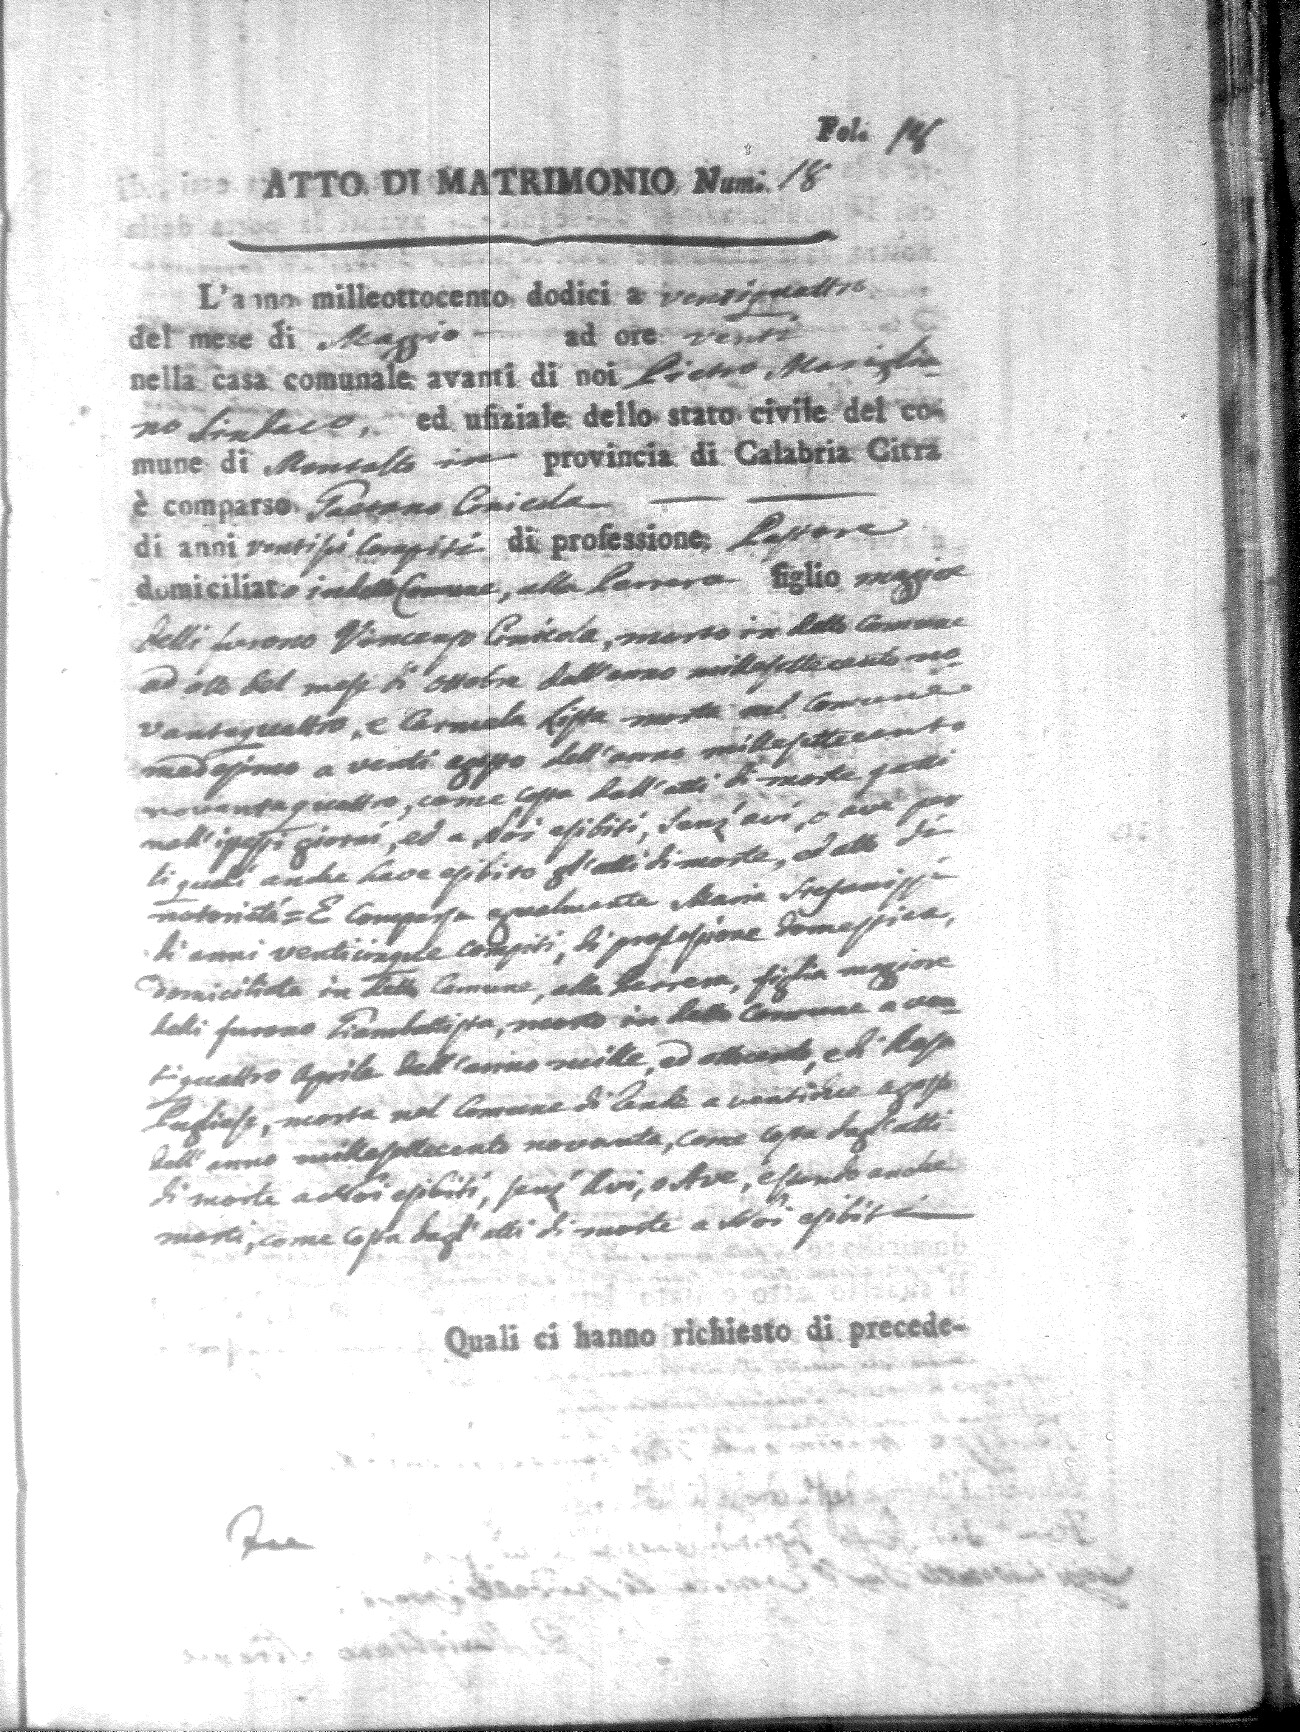 Fol. 18
ATTO DI MATRIMONIO Num. 18
L'anno milleottocento dodici a ventiquattro
del mese di Maggio ad ore venti
nella casa comunale avanti di noi Pietro Mariglia-
no Sindaco, ed ufiziale dello stato civile del co-
mune di Montalto in provincia di Calabria Citra
è comparso Gaetano Conicola
di anni ventisei compiti di professione Pastore
domiciliato in detto Comune, alla figlio maggiore
delli furono Vincenzo Conicola, morto in detto Comune
ad otto del mese di ottobre dell'anno millesettecento no-
vantaquattro, e Carmela Lissa morta nel Comune
medesimo a venti agosto dell'anno millesettecento
novantaquattro, come costa dall'atti di morte
nell'istessi giorni, ed a Noi esibiti, senz'avi, o ave per
li quali anche have esibito gl'atti di morte, ed atto di
notorietà = E comparsa egualmente Maria
di anni venticinque compiti, di professione domestica,
domiciliata in detto Comune, alla figlia maggiore
delli furono Giambattista, morto in detto Comune a ven-
tiquattro Aprile dell'anno mille, ed ottocento, e di Rosa
Pugliese, morta nel Comune di a ventidue agosto
dell'anno millesettecento novanta, come costa dagl'atti
di morte a Noi esibiti, senz'Avi, o Ave, essendo anche
morti, come costa dagl'atti di morte a Noi esibiti
Quali ci hanno richiesto di precede-